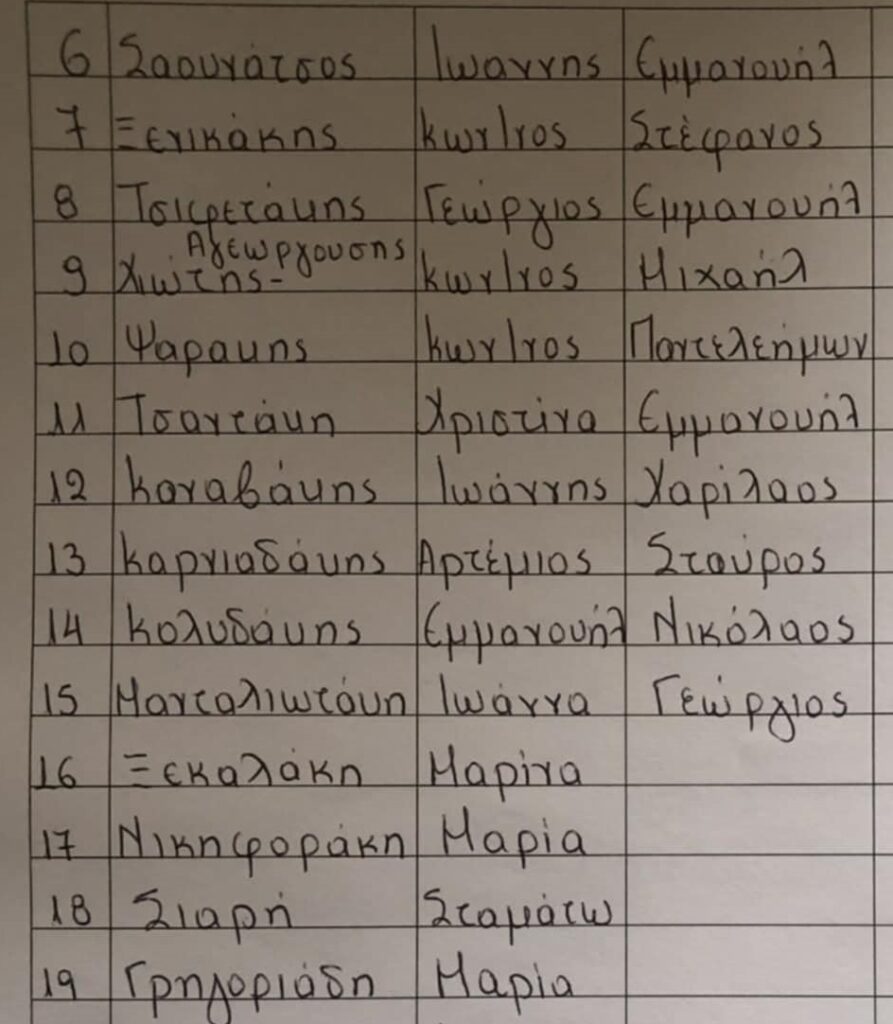 6 Σαουνάτσος Ιωαννης Εμμανουήλ
7 Ξενικάκης Κων/νος Στέφανος
8 Τσικρετάκης Γεώργιος Εμμανουήλ
Αγεωργουσης
9 Χιώτης- Κων/νος Μιχαήλ
10 Ψαρακης Κων/νος Παντελεήμων
11 Τσαντάκη Χριστίνα Εμμανουήλ
12 Καναβάκης Ιωάννης Χαρίλαος
13 Καρνιαδάκης Αρτέμιος Σταύρος
14 Κολυδάκης Εμμανουήλ Νικόλαος
15 Μανταλιωτάκη Ιωάννα Γεώργιος
16 Ξεκαλάκη Μαρίνα
17 Νικηφοράκη Μαρία
18 Σιαρή Σταμάτω
19 Γρηγοριάδη Μαρία